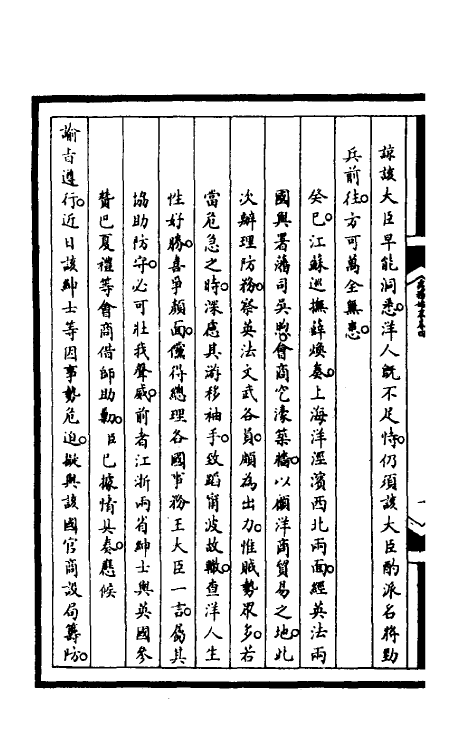 諒該大臣早能洞悉洋人旣不足恃仍須該大臣酌派名將勁
兵前往方可萬全無患
癸巳江蘇巡撫薛煥奏上海洋涇濱西北兩面經英法兩
國與署藩司吳煦會商挖濠築牆以衞洋商貿易之地此
次辦理防務察英法文武各員頗為出力惟賊勢眾多若
當危急之時深慮其游移袖手致蹈甯波故轍查洋人生
性好勝喜爭顏面儻得總理各國事務王大臣一言屬其
協助防守必可壯我聲威前者江浙兩省紳士與英國參
贊巴夏禮等會商借師助勦臣已據情具奏應候
諭旨遵行近日該紳士等因事勢危迫擬與該國官商設局籌防